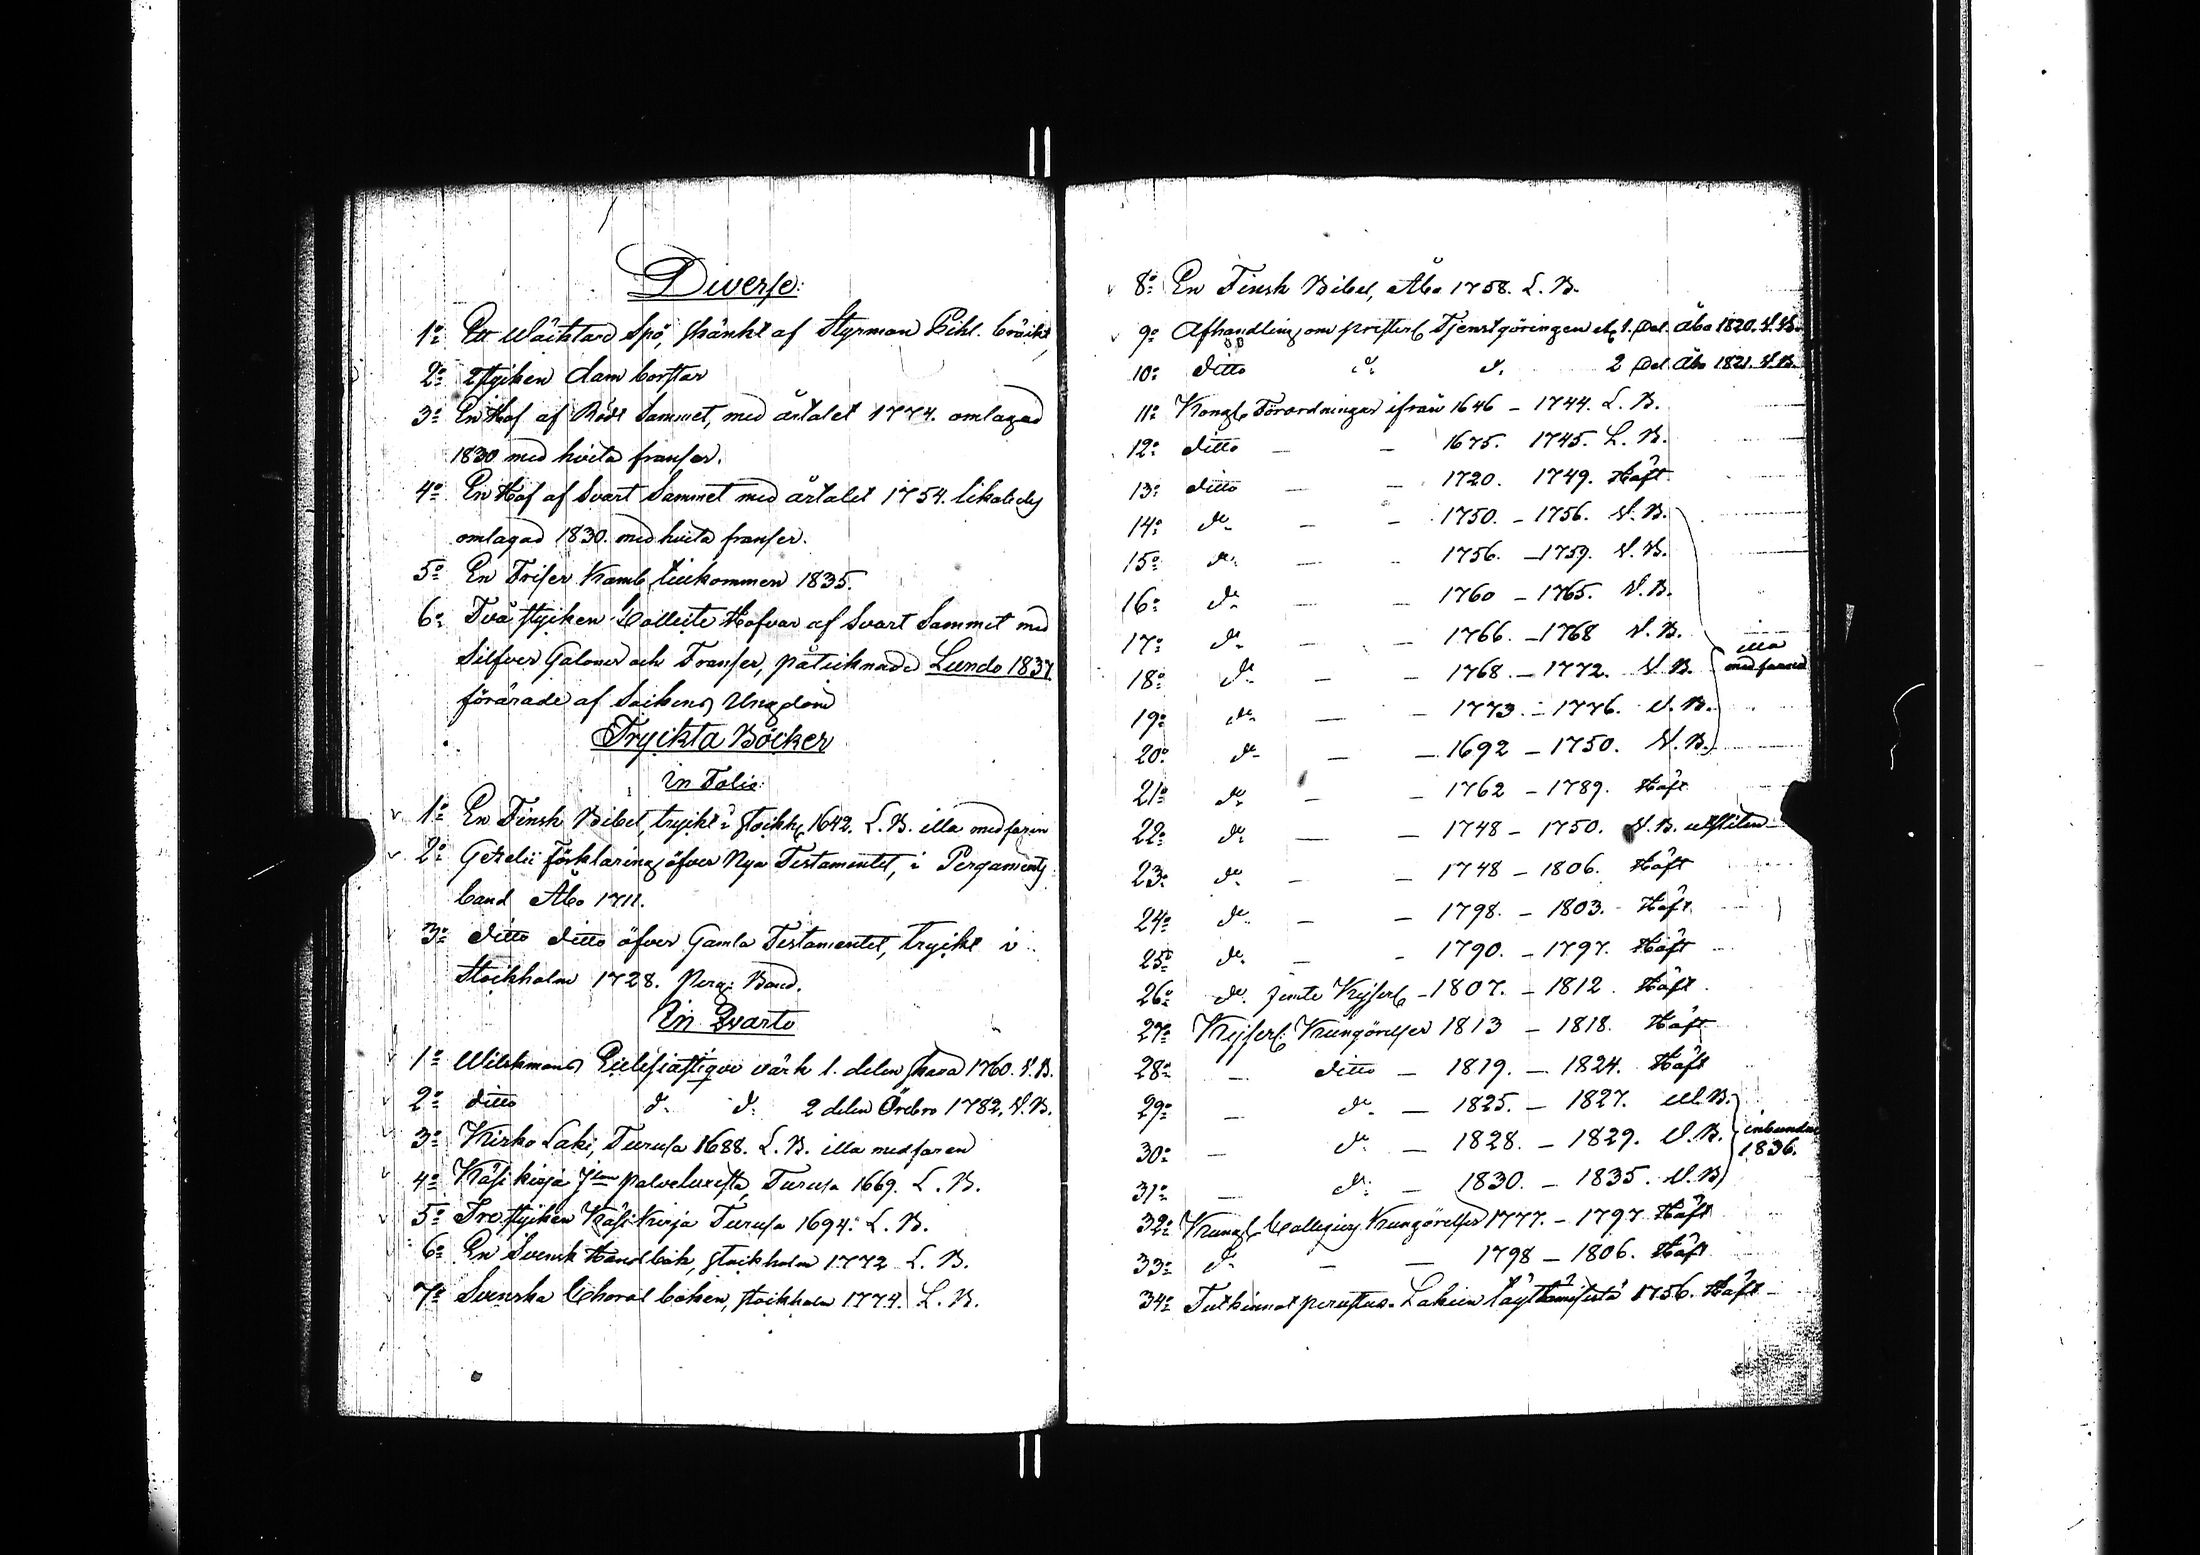 Diverse:
1:o Ett Wäcktare Spö, skänkt af Styrman Pihl. bräckt
2:o 2 stycken dam borstar
3:o En Hof af Rödt Sammet, med årtalet 1774. omlagad
1830 med hvita franser.
4:o En Hof af Svart Sammet med årtalet 1754. likaledes
omlagad 1830. med hvita franser.
5:o En Friser Kamb, tillkommen 1835.
6:o Två stycken Collecte Hofvar af Svart Sammet med
Silfver Galoner och Franser, påtecknade Lundo 1837
förärade af Sockens Ungdom
Tryckta Böcker
in Folio:
v 1:o En Finsk Bibel, tryckt i Stockh. 1642. L. B. illa medfaren
v 2:o Gezelii förklaring öfver Nya Testamentet, i Pergaments
band Åbo 1711.
v 3:o ditto ditto öfver Gamla Testamentet, tryckt i
Stockholm 1728. Perg: Band.
In Qvarto
v 1:o Wilskmans Ecclesiastique värk 1. delen Skara 1760. V. B.
v 2:o ditto d:o d:o 2 delen Örebro 1782. V. B.
v 3:o Kirko Laki, Turusa 1688. L. B. illa medfaren
v 4:o Käsi kirja palveluxesta, Turusa 1669. L. B.
v 5:o Tre stycken Käsi Kirja Turusa 1694. L. B.
v 6:o En Svensk Handbok, Stockholm 1772 L. B.
7:o Svenska Choral boken, Stockholm 1774. L. B.
v 8:o En Finsk Bibel, Åbo 1758. L. B.
v 9:o Afhandling om presterl. Tjenstgöringen etc 1. Del. Åbo 1820. V. B.
10:o ditto d:o d:o 2 Del. Åbo 1821. V. B.
11:o Kongl. Förordningar ifrån 1646 - 1744. L. B.
12:o ditto - - 1675. 1745. L. B.
13:o ditto - - 1720. 1749. Häft
14:o d:o - - 1750. - 1756. V. B.
15:o d:o - 1756. - 1759. V. B.
16:o d:o - - 1760 - 1765. V. B.
17:o d:o - - 1766. - 1768 V. B.
illa
18:o d:o - - 1768. - 1772. V. B. medfarne
19:o d:o - - 1773. - 1776. V. B.
20:o d:o - - 1692 - 1750. V. B.
21:o d:o - - 1762 - 1789. Häft
22:o d:o - - 1748 - 1750. V. B. utsliten
23:o d:o - - 1748 - 1806. Häft
24:o d:o - - 1798. - 1803. Häft
25:o d:o - - 1790. - 1797. Häft
26:o d:o jemte Kejserl. - 1807. - 1812. Häft
27:o Kejserl. Kungörelser 1813 - 1818. Häft
28:o - ditto - 1819. - 1824. Häft
29:o - d:o - 1825. - 1827. V. B.
30:o - d:o - 1828. - 1829. V. B. inbundne
1836.
31:o - d:o - 1830. - 1835. V. B
32:o Kungl. Collegiers Kungörelser 1777. - 1797 Häft
33:o d:o - - 1798 - 1806. Häft
34:o Tutkinnot perustus. Lakein 1756. Häft